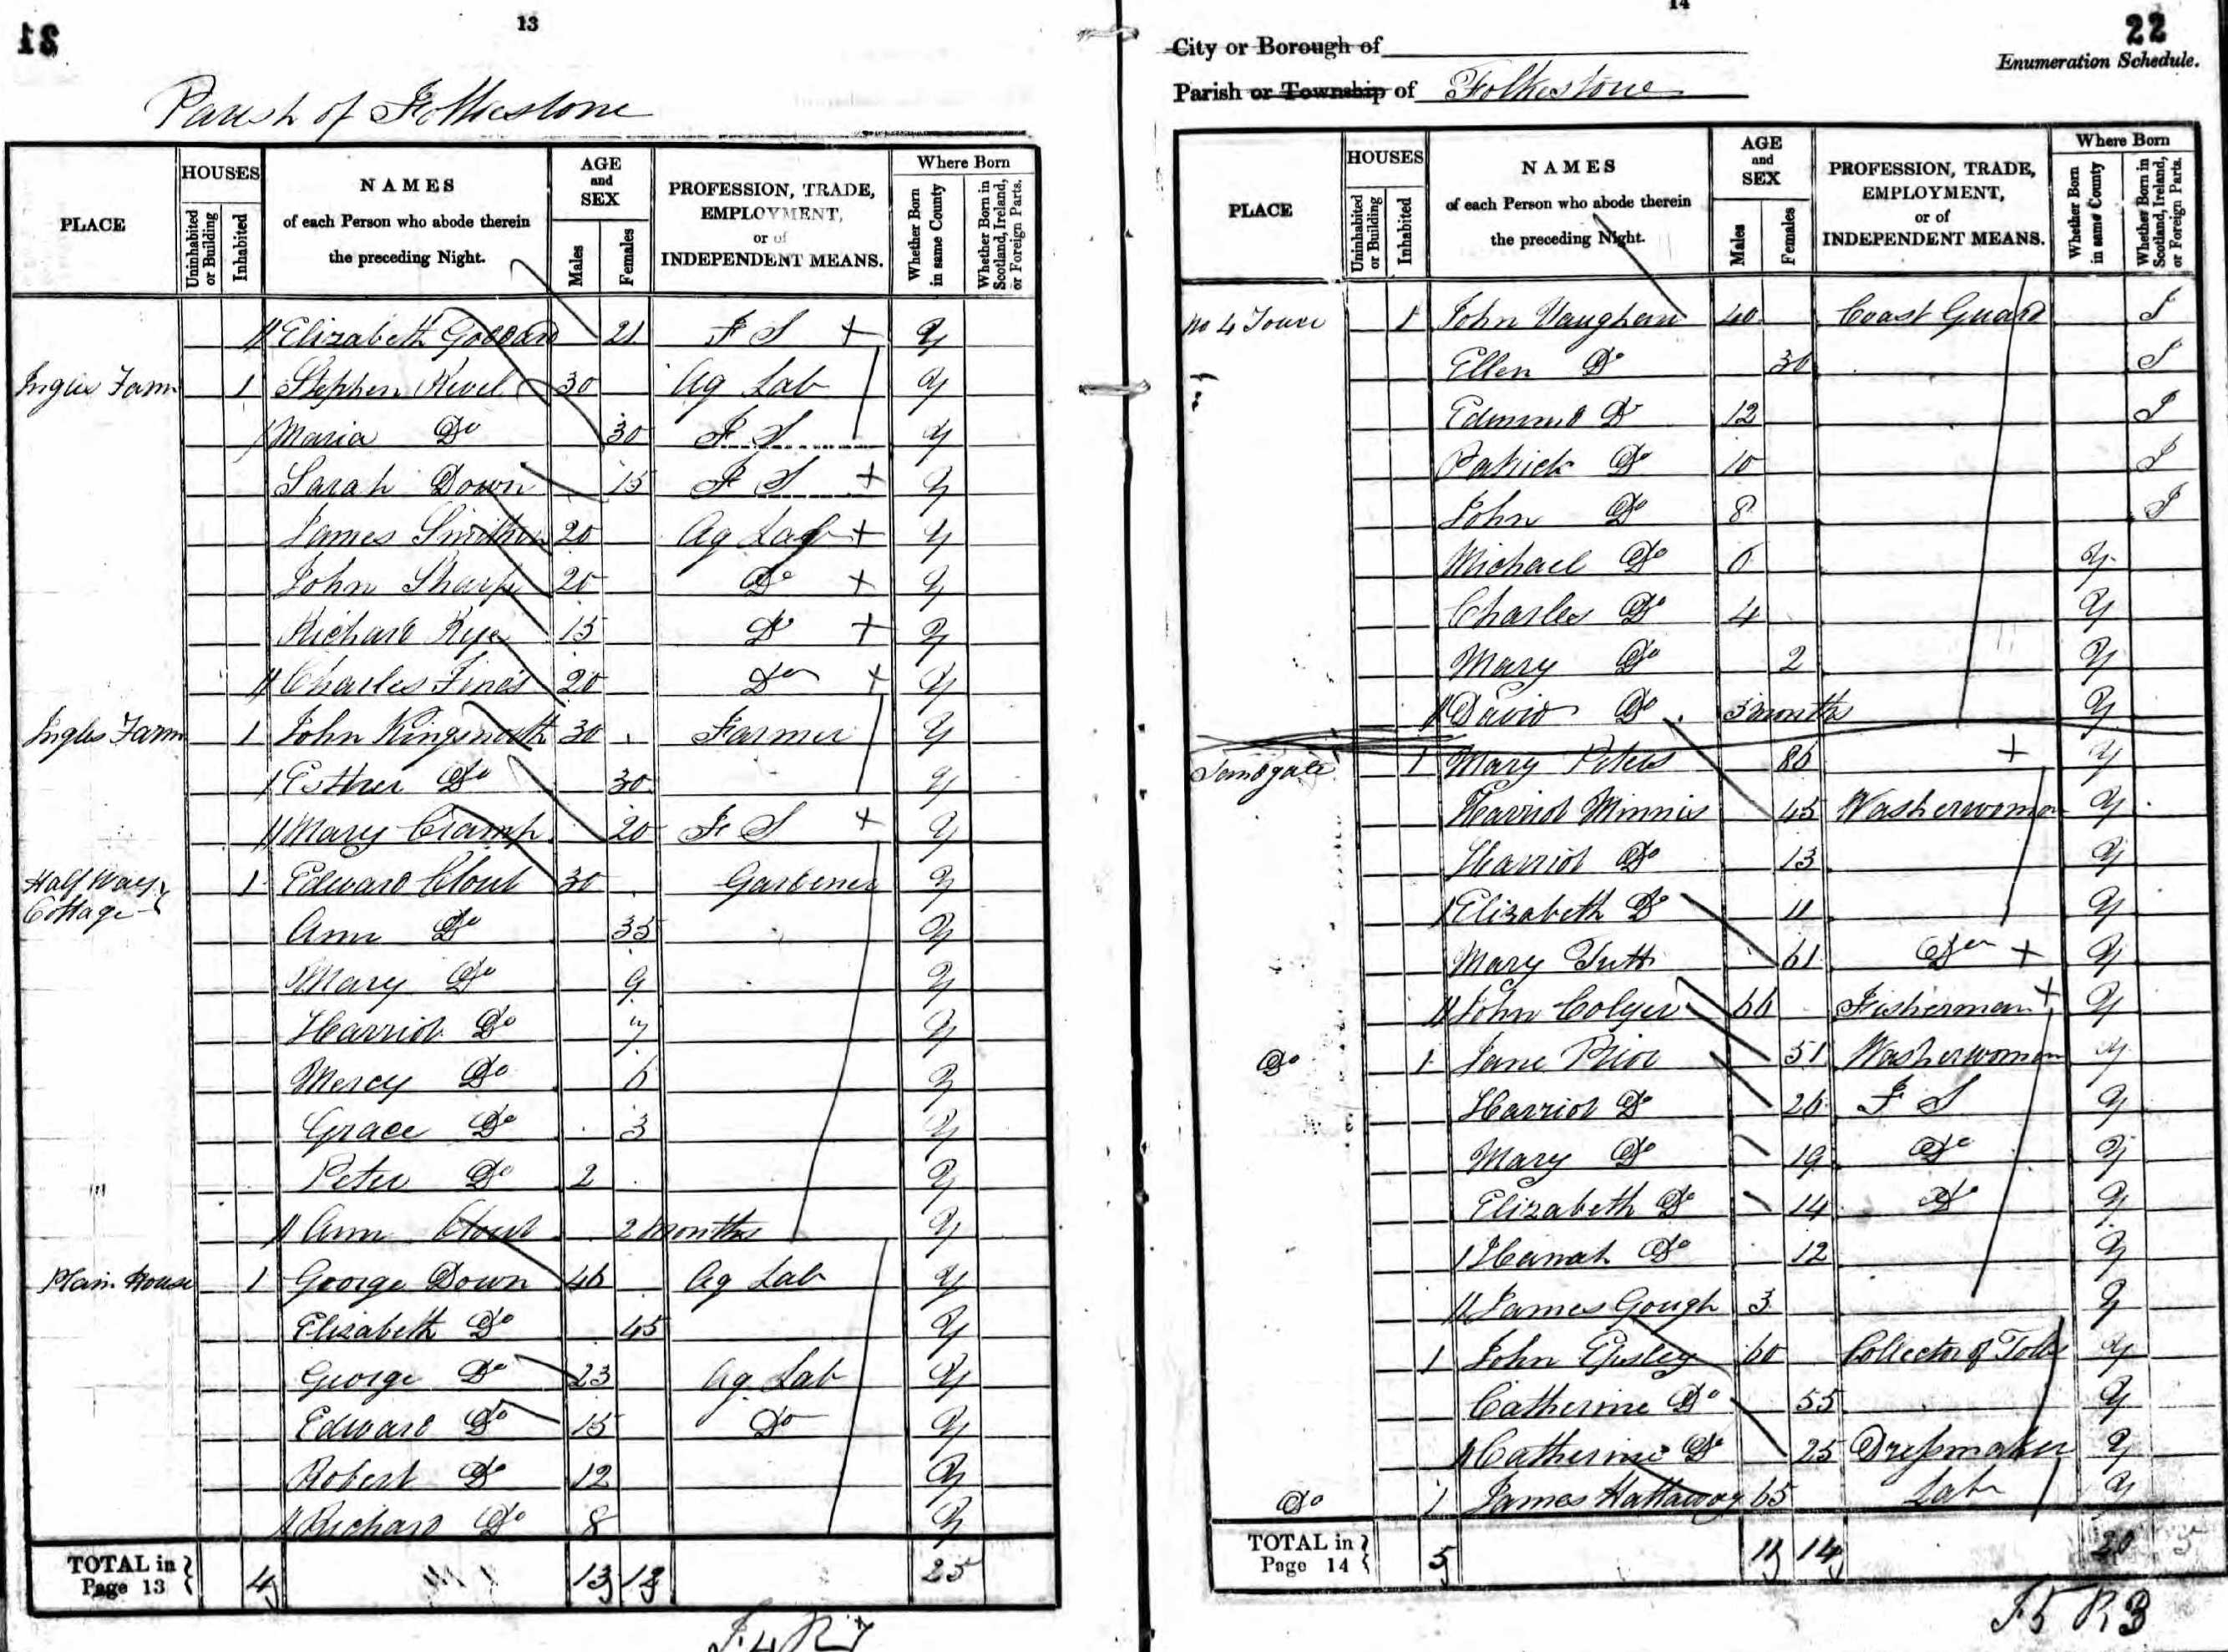 21
13
Parish of Folkestone
PLACE
HOUSES
Uninhabited or Building
Inhabited
NAMES
of each Person who abode therein
the preceding Night.
AGE
and
SEX
Males
Females
PROFESSION, TRADE,
EMPLOYMENT,
or of
INDEPENDENT MEANS.
Where Born
Whether Born in same County
Whether Born in Scotland, Ireland, or Foreign Parts.
Elizabeth Goddard 21 F S + Y
Ingles Farm 1 Stephen 30 Ag Lab Y
Maria Do 30 F S Y
Sarah Down 15 F S + Y
James 20 Ag Lab + Y
John Sharp 20 Do + Y
Richard Rye 15 Do + Y
Charles 20 Do + Y
Ingles Farm 1 John Kingsnorth 30 Farmer Y
Esther Do 30 Y
Mary Cramp 20 F S + Y
Half Way Cottage 1 Edward Clout 30 Gardener Y
Ann Do 35 Y
Mary Do 9 Y
Harriot Do 7 Y
Mercy Do 6 Y
Grace Do 3 Y
Peter Do 2 Y
Ann Clout 2 months Y
Plain House 1 George Down 46 Ag Lab Y
Elizabeth Do 45 Y
George Do 23 Ag Lab Y
Edward Do 15 Do Y
Robert Do 12 Y
Richard Do 8 Y
TOTAL in Page 13 4 13 12 25
14
22
City or Borough of
Enumeration Schedule.
Parish or Township of Folkestone
PLACE
HOUSES
Uninhabited or Building
Inhabited
NAMES
of each Person who abode therein
the preceding Night.
AGE
and
SEX
Males
Females
PROFESSION, TRADE,
EMPLOYMENT,
or of
INDEPENDENT MEANS.
Where Born
Whether Born in same County
Whether Born in Scotland, Ireland, or Foreign Parts.
No 4 Tower 1 John Vaughan 40 Coast Guard I
Ellen Do 30 I
Edmund Do 12 I
Patrick Do 10 I
John Do 8 I
Michael Do 6 Y
Charles Do 4 Y
Mary Do 2 Y
David Do 3 months Y
Sandgate 1 Mary Peters 86 + Y
Harriot Minnis 45 Washerwoman Y
Harriot Do 13 Y
Elizabeth Do 11 Y
Mary Tutt 61 Do + Y
John Colyer 66 Fisherman + Y
Do 1 Jane Prior 51 Washerwoman Y
Harriot Do 26 F S Y
Mary Do 19 Do Y
Elizabeth Do 14 Do Y
Hanah Do 12 Y
James Gough 3 Y
1 John 60 Collector of Tolls Y
Catherine Do 55 Y
Catherine Do 25 Dressmaker Y
Do 1 James Hattaway 65 Lab Y
TOTAL in Page 14 5 11 14 20 5